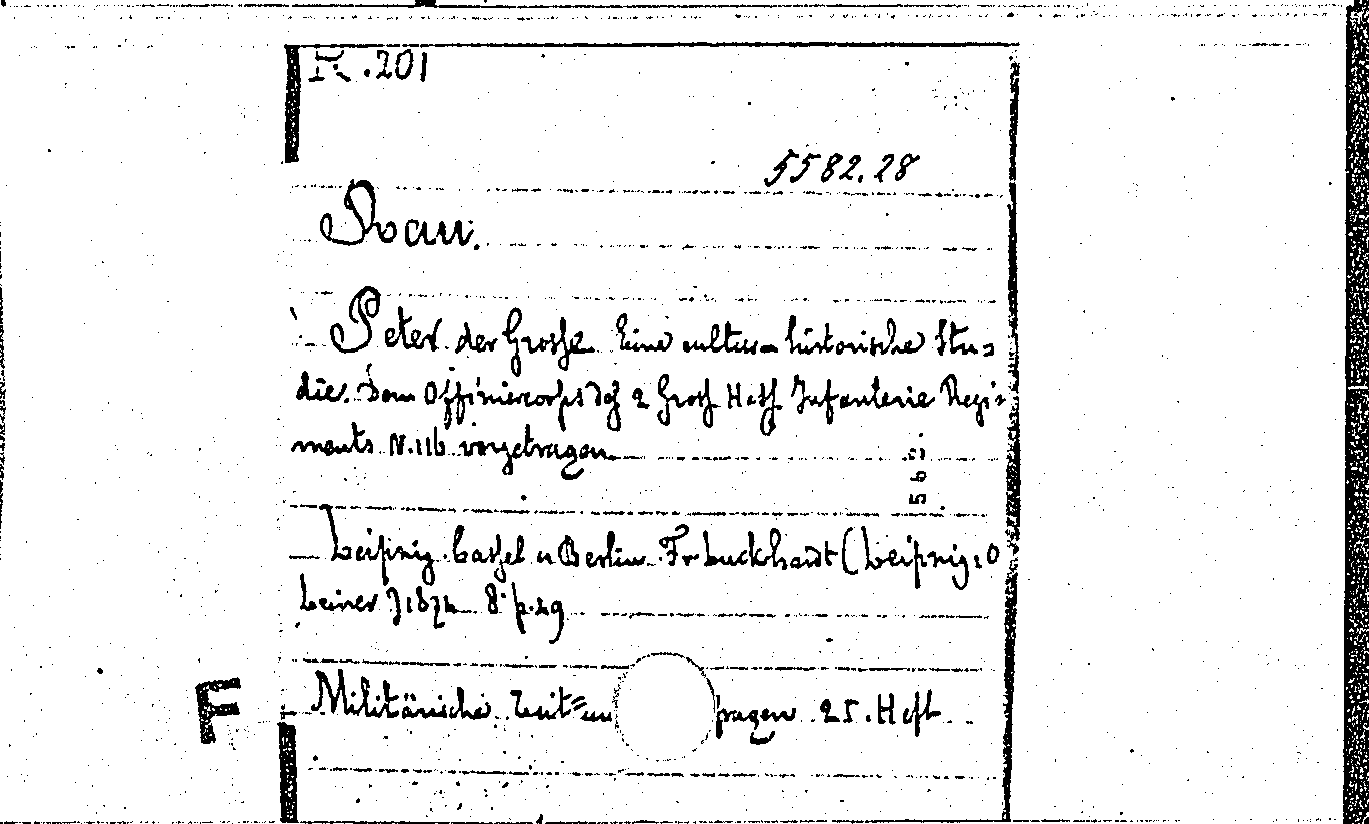 R.201
5582.28
Rau.
Peter der Grosse. Eine culturhistorische Stu-
die. Dem Offiziercorps des 2 Grosh Hess Infanterie Regi-
ments N.116 vorgetragen
Leipzig. Cassel u Berlin. Fr Luckhardt (Leipzig, O
Leiner) 1874 8° p.29
Militärische Zeit= un fragen 25. Heft
F